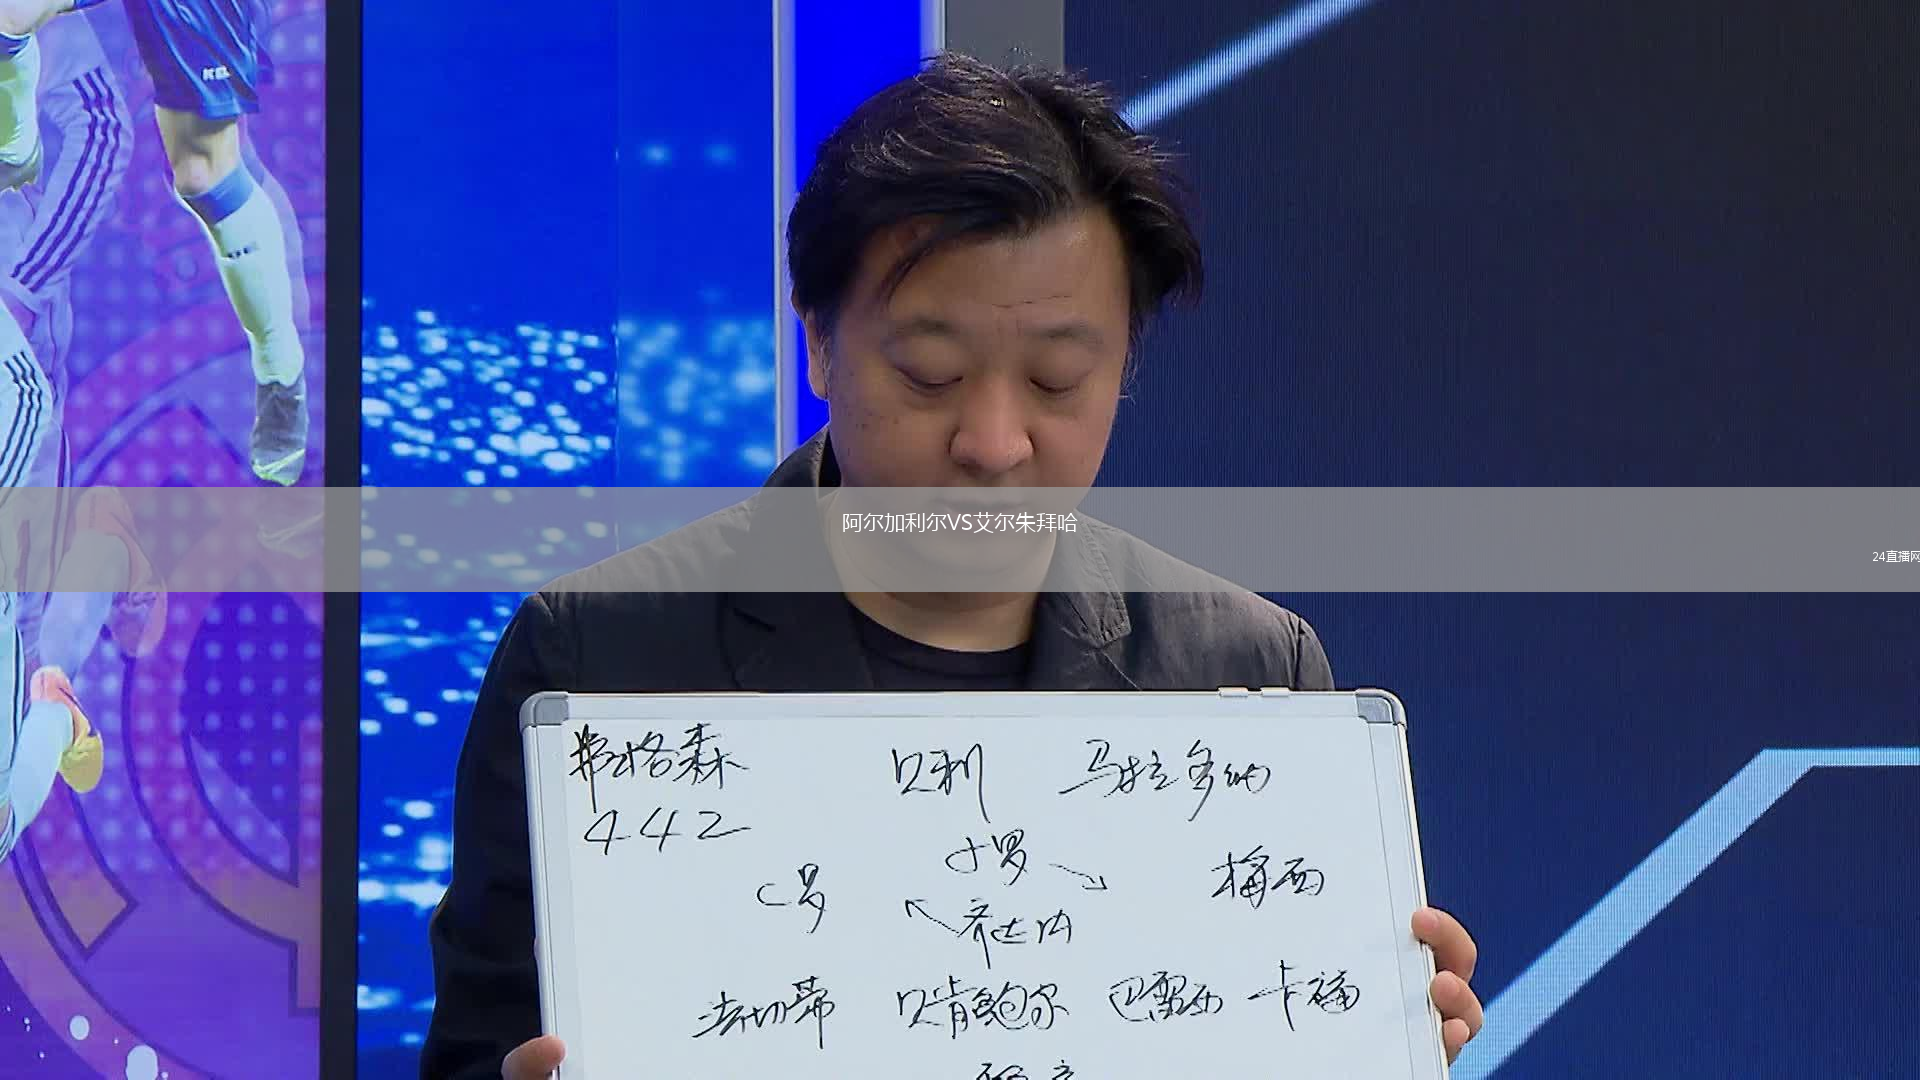 KEL
阿尔加利尔VS艾尔朱拜哈
24直播网
弗格森 贝利 马拉多纳
442
小罗
C罗 梅西
齐达内
法切蒂 贝肯鲍尔 巴雷西 卡福